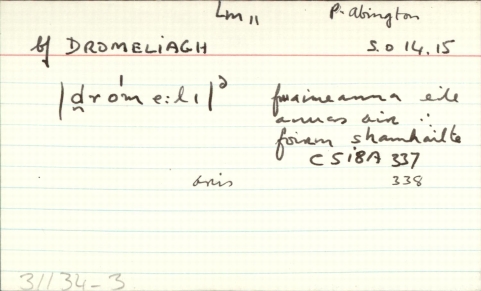 Lm 11 P. Abington
bf DROMELIAGH S.O 14.15
|d̪ro'm e:lɪ|ə fuaimeanna eile
annas air ∴
foirm shamhailte
CSi8A 337
aris 338
31134-3